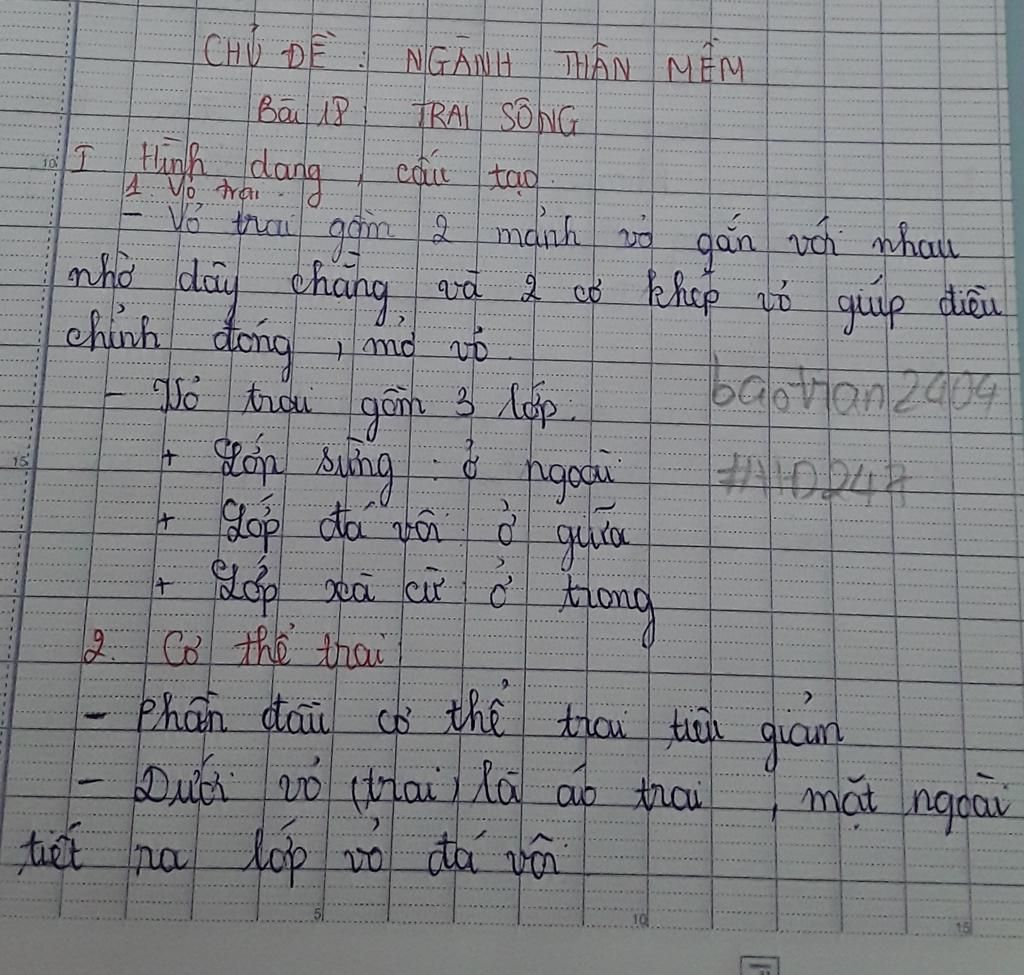 CHỦ ĐỀ : NGÀNH THÂN MỀM
Bài 18 TRAI SÔNG
I Hình dạng, cấu tạo
1 Vỏ trai
- Vỏ trai gồm 2 mảnh vỏ gắn với nhau
nhờ dây chằng và 2 cơ khép vỏ giúp điều
chỉnh đóng, mở vỏ.
- Vỏ trai gồm 3 lớp.
baotran2404
+ Lớp sừng ở ngoài
+ Lớp đá vôi ở giữa
+ Lớp xà cừ ở trong
2. Cơ thể trai
- Phần đầu cơ thể trai tiêu giảm
- Dưới vỏ (trai) là áo trai, mặt ngoài
tiết ra lớp vỏ đá vôi
10
15
5
10
15